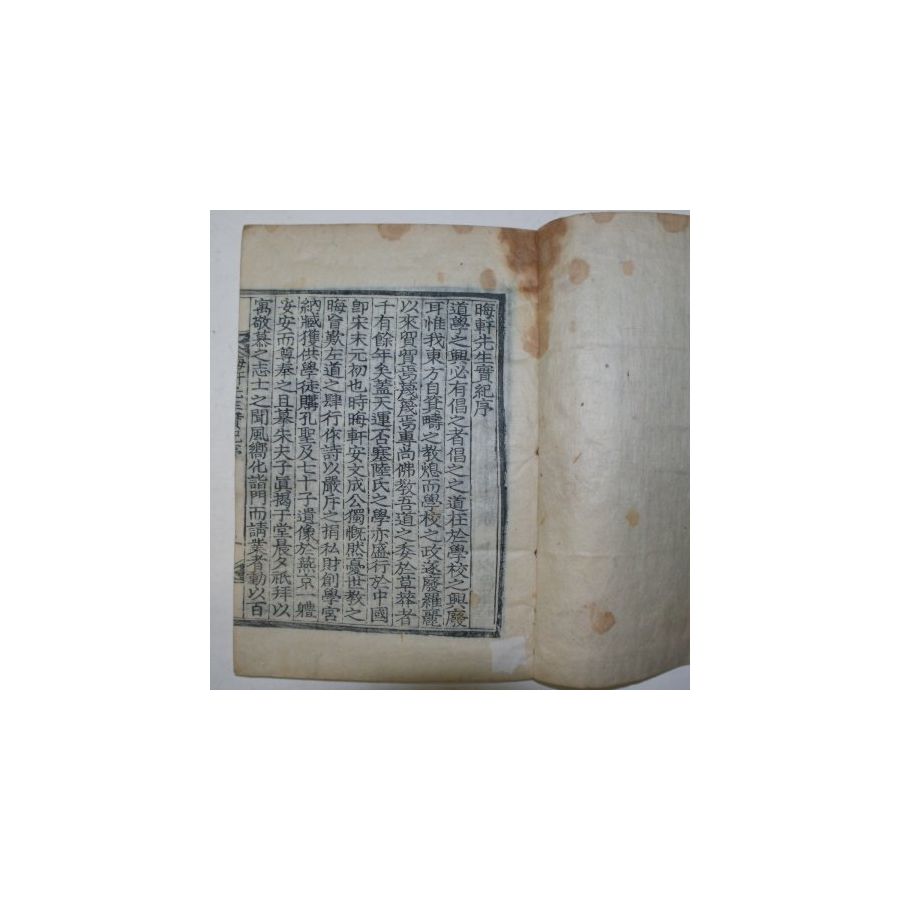 晦軒先生實紀序
道學之興必有倡之者倡之之道在於學校之興廢
耳惟我東方自箕疇之教熄而學校之政遂廢羅麗
以來貿貿焉蔑蔑焉專尚佛教吾道之委於草莽者
千有餘年矣蓋天運否塞陸氏之學亦盛行於中國
卽宋末元初也時晦軒安文成公獨慨然憂世教之
晦曾歎左道之肆行作詩以嚴斥之捐私財創學宮
納臧獲供學徒購孔聖及七十子遺像於燕京一軆
安安而尊奉之且摹朱夫子眞揭于堂晨夕祇拜以
寓敬慕之志士之聞風嚮化詣門而請業者動以百